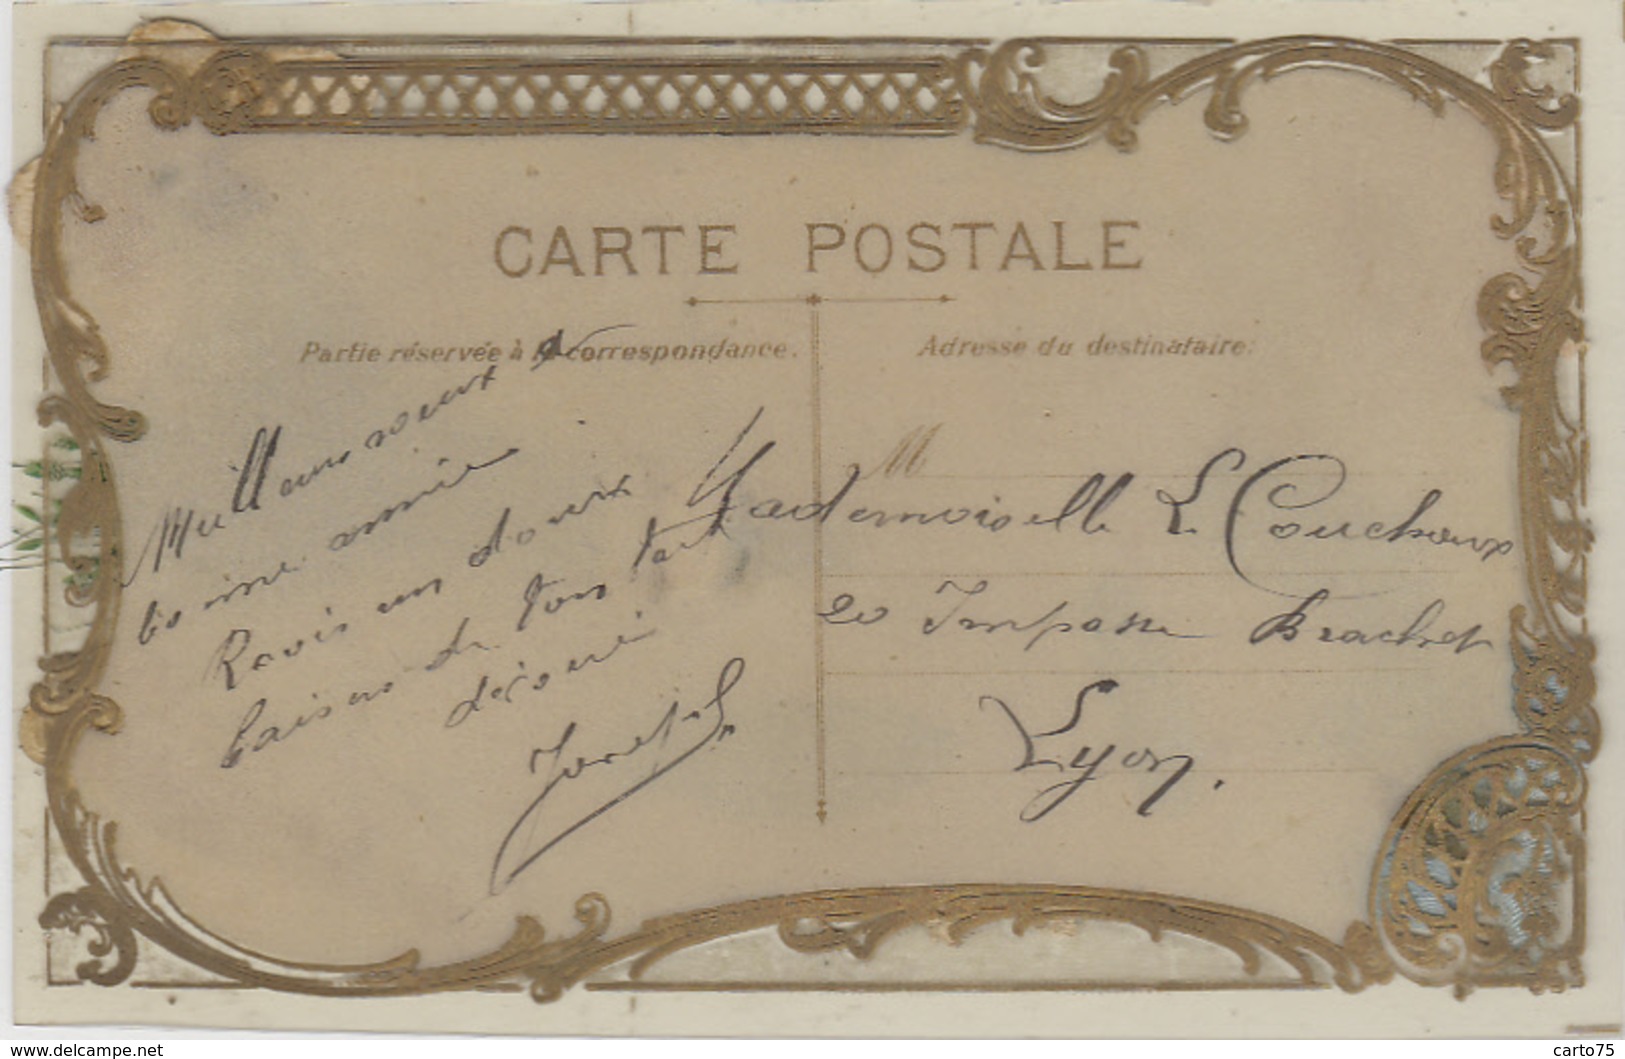 CARTE POSTALE
Partie réservée à la correspondance.
Adresse du destinataire:
Meilleurs voeux &
bonne année
Reçois un doux
baiser de ton tout
dévoué
Joseph
M
Mademoiselle L. Couchoux
20 Impasse Brachet
Lyon.
www.delcampe.net
carto75